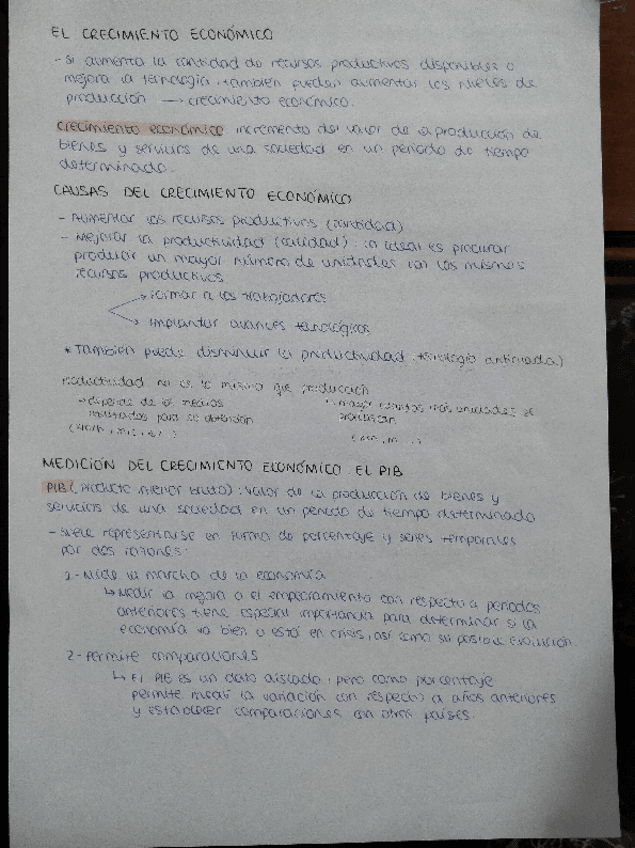 EL CRECIMIENTO ECONÓMICO
- Si aumenta la cantidad de recursos productivos disponibles o
mejora la tecnología, también pueden aumentar los niveles de
producción → crecimiento económico.
Crecimiento económico incremento del valor de la producción de
bienes y servicios de una sociedad en un periodo de tiempo
determinado.
CAUSAS DEL CRECIMIENTO ECONÓMICO
- Aumentar los recursos productivos (cantidad)
- Mejorar la productividad (calidad): lo ideal es procurar
producir un mayor número de unidades con los mismos
recursos productivos
→ Formar a los trabajadores
→ Implantar avances tecnológicos
* También puede disminuir la productividad (tecnología anticuada)
Productividad no es lo mismo que producción
→ depende de los medios
para su obtención
más unidades se
MEDICIÓN DEL CRECIMIENTO ECONÓMICO: EL PIB
PIB (Producto Interior Bruto): valor de la producción de bienes y
servicios de una sociedad en un periodo de tiempo determinado
- Suele representarse en forma de porcentaje y series temporales
por dos razones:
1- Mide la marcha de la economía
↳ Medir la mejora o el empeoramiento con respecto a periodos
anteriores tiene especial importancia para determinar si la
economía va bien o está en crisis, así como su posible evolución.
2- Permite comparaciones
↳ El PIB es un dato aislado, pero como porcentaje
permite medir la variación con respecto a años anteriores
y establecer comparaciones con otros países.